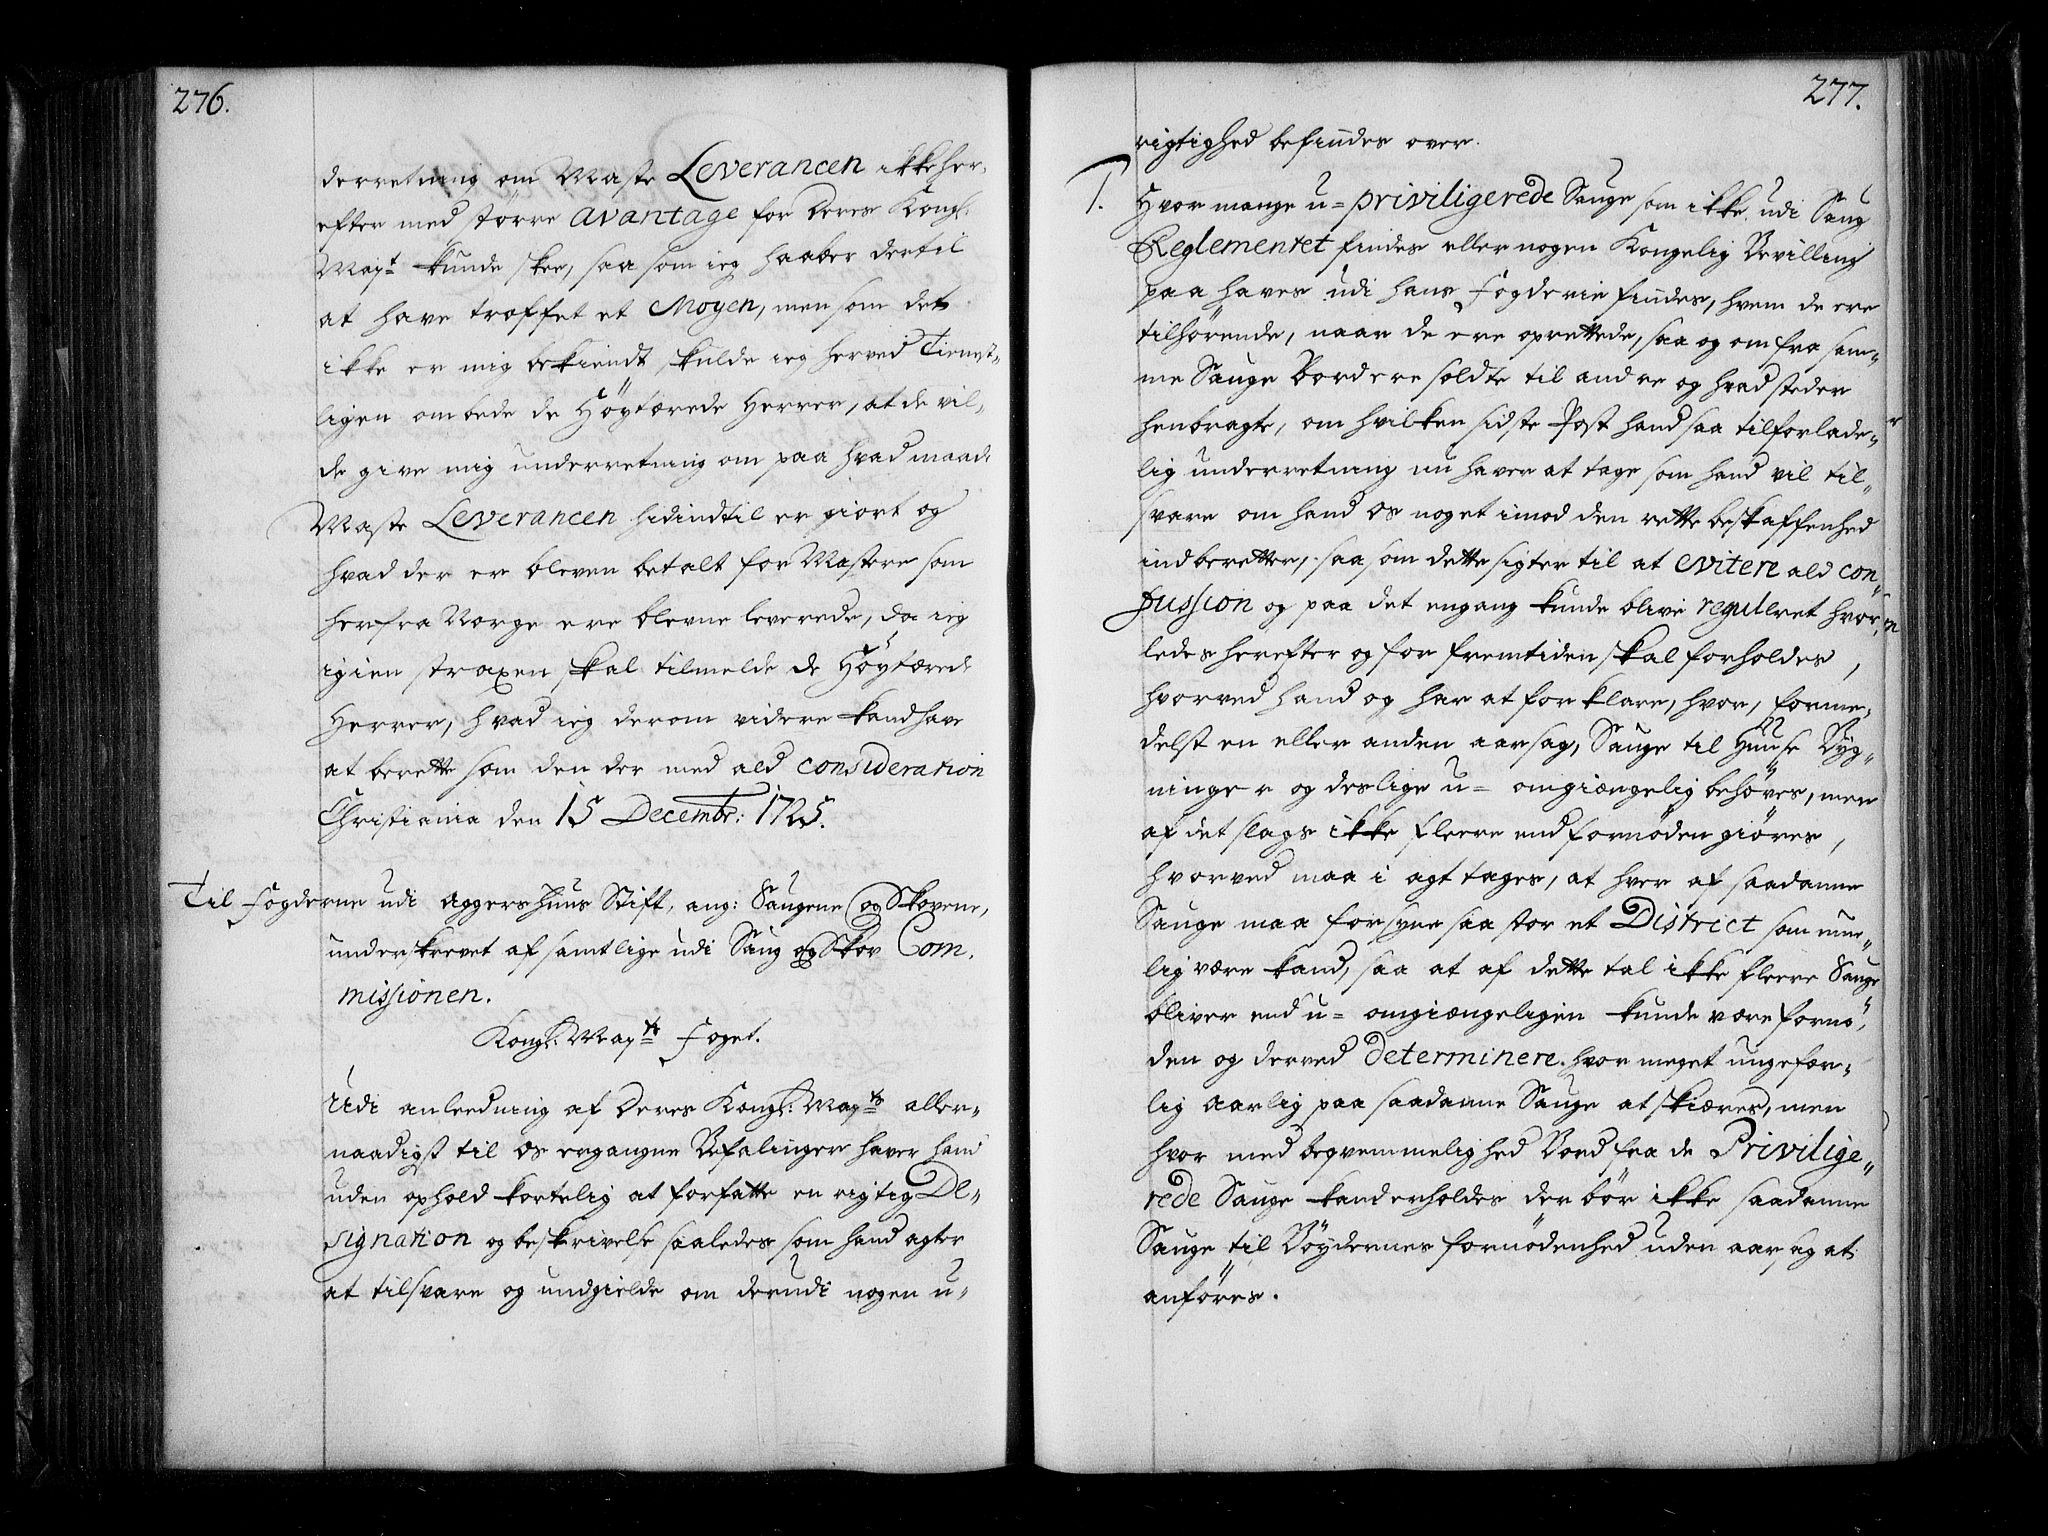 276.
derretning om Maste Leverancen ikke her-
efter med større avantage for Deres Kongl:
Mayt kunde skee, saa som ieg haaber dertil
at have troffet et Moyen, men som det
ikke er mig bekiendt skulde ieg herved Tienst-
ligen ombede de Höytærede Herrer, at de vil-
de give mig underretning om paa hvad maade
Maste Leverancen hidindtil er giort og
hvad der er bleven betalt for Mastere som
herfra Norge ere blevne leverede, da ieg
igien straxen skal tilmelde de Höytærede
Herrer, hvad ieg derom videre kand have
at berette som den der med ald consideration
Christiania den 15 Decembr: 1725.
Til Fogderne udi Aggershuus Stift, ang: Saugene og Skovene,
underskrevet af samtlige udi Saug og Skov Com-
missionen.
Kongl: Mayts Foget.
Udi anleedning af Deres Kongl: Mayts aller-
naadigst til os ergangne Befalinger haver hand
uden ophold kortelig at forfatte en rigtig De-
signation og beskrivelse saaledes som hand agter
at tilsvare og undgielde om derudi nogen u-
277.
rigtighed befindes over.
1. Hvor mange u-priviligerede Sauge som ikke udi Saug
Reglementet findes eller nogen Kongelig Bevilling
paa haves udi hans Fogderie findes, hvem de ere
tilhørende, naar de ere oprettede, saa og om fra sam-
me Sauge Bord ere soldte til andre og hvad steder
henbragte, om hvilken sidste Post hand saa tilforlade-
lig underretning nu haver at tage som hand vil til-
svare om hand os noget imod den rette beskaffenhed
indberetter, saa som dette sigter til at evitere ald con-
fussion og paa det engang kunde blive reguleret hvor-
ledes herefter og for fremtiden skal forholdes,
hvorved hand og har at forklare, hvor, forme-
delst en eller anden aarsag, Sauge til Huuse Byg-
ninger og deslige u-omgiængelig behöves, men
af det slags ikke fleere end fornöden giöres,
hvorved maa i agt tages, at hver af saadanne
Sauge maa forsyne saa stor et District som mue-
lig være kand, saa at af dette tal ikke fleere Sauge
bliver end u-omgiængeligen kunde være fornö-
den og derved determinere hvor meget ungefær-
lig aarlig paa saadanne Sauge at skiæres, men
hvor med beqvemmelighed Bord fra de Privilige-
rede Sauge kand erholdes der bör ikke saadanne
Sauge til Böydernes fornödenhed uden aarsag at
anföres.